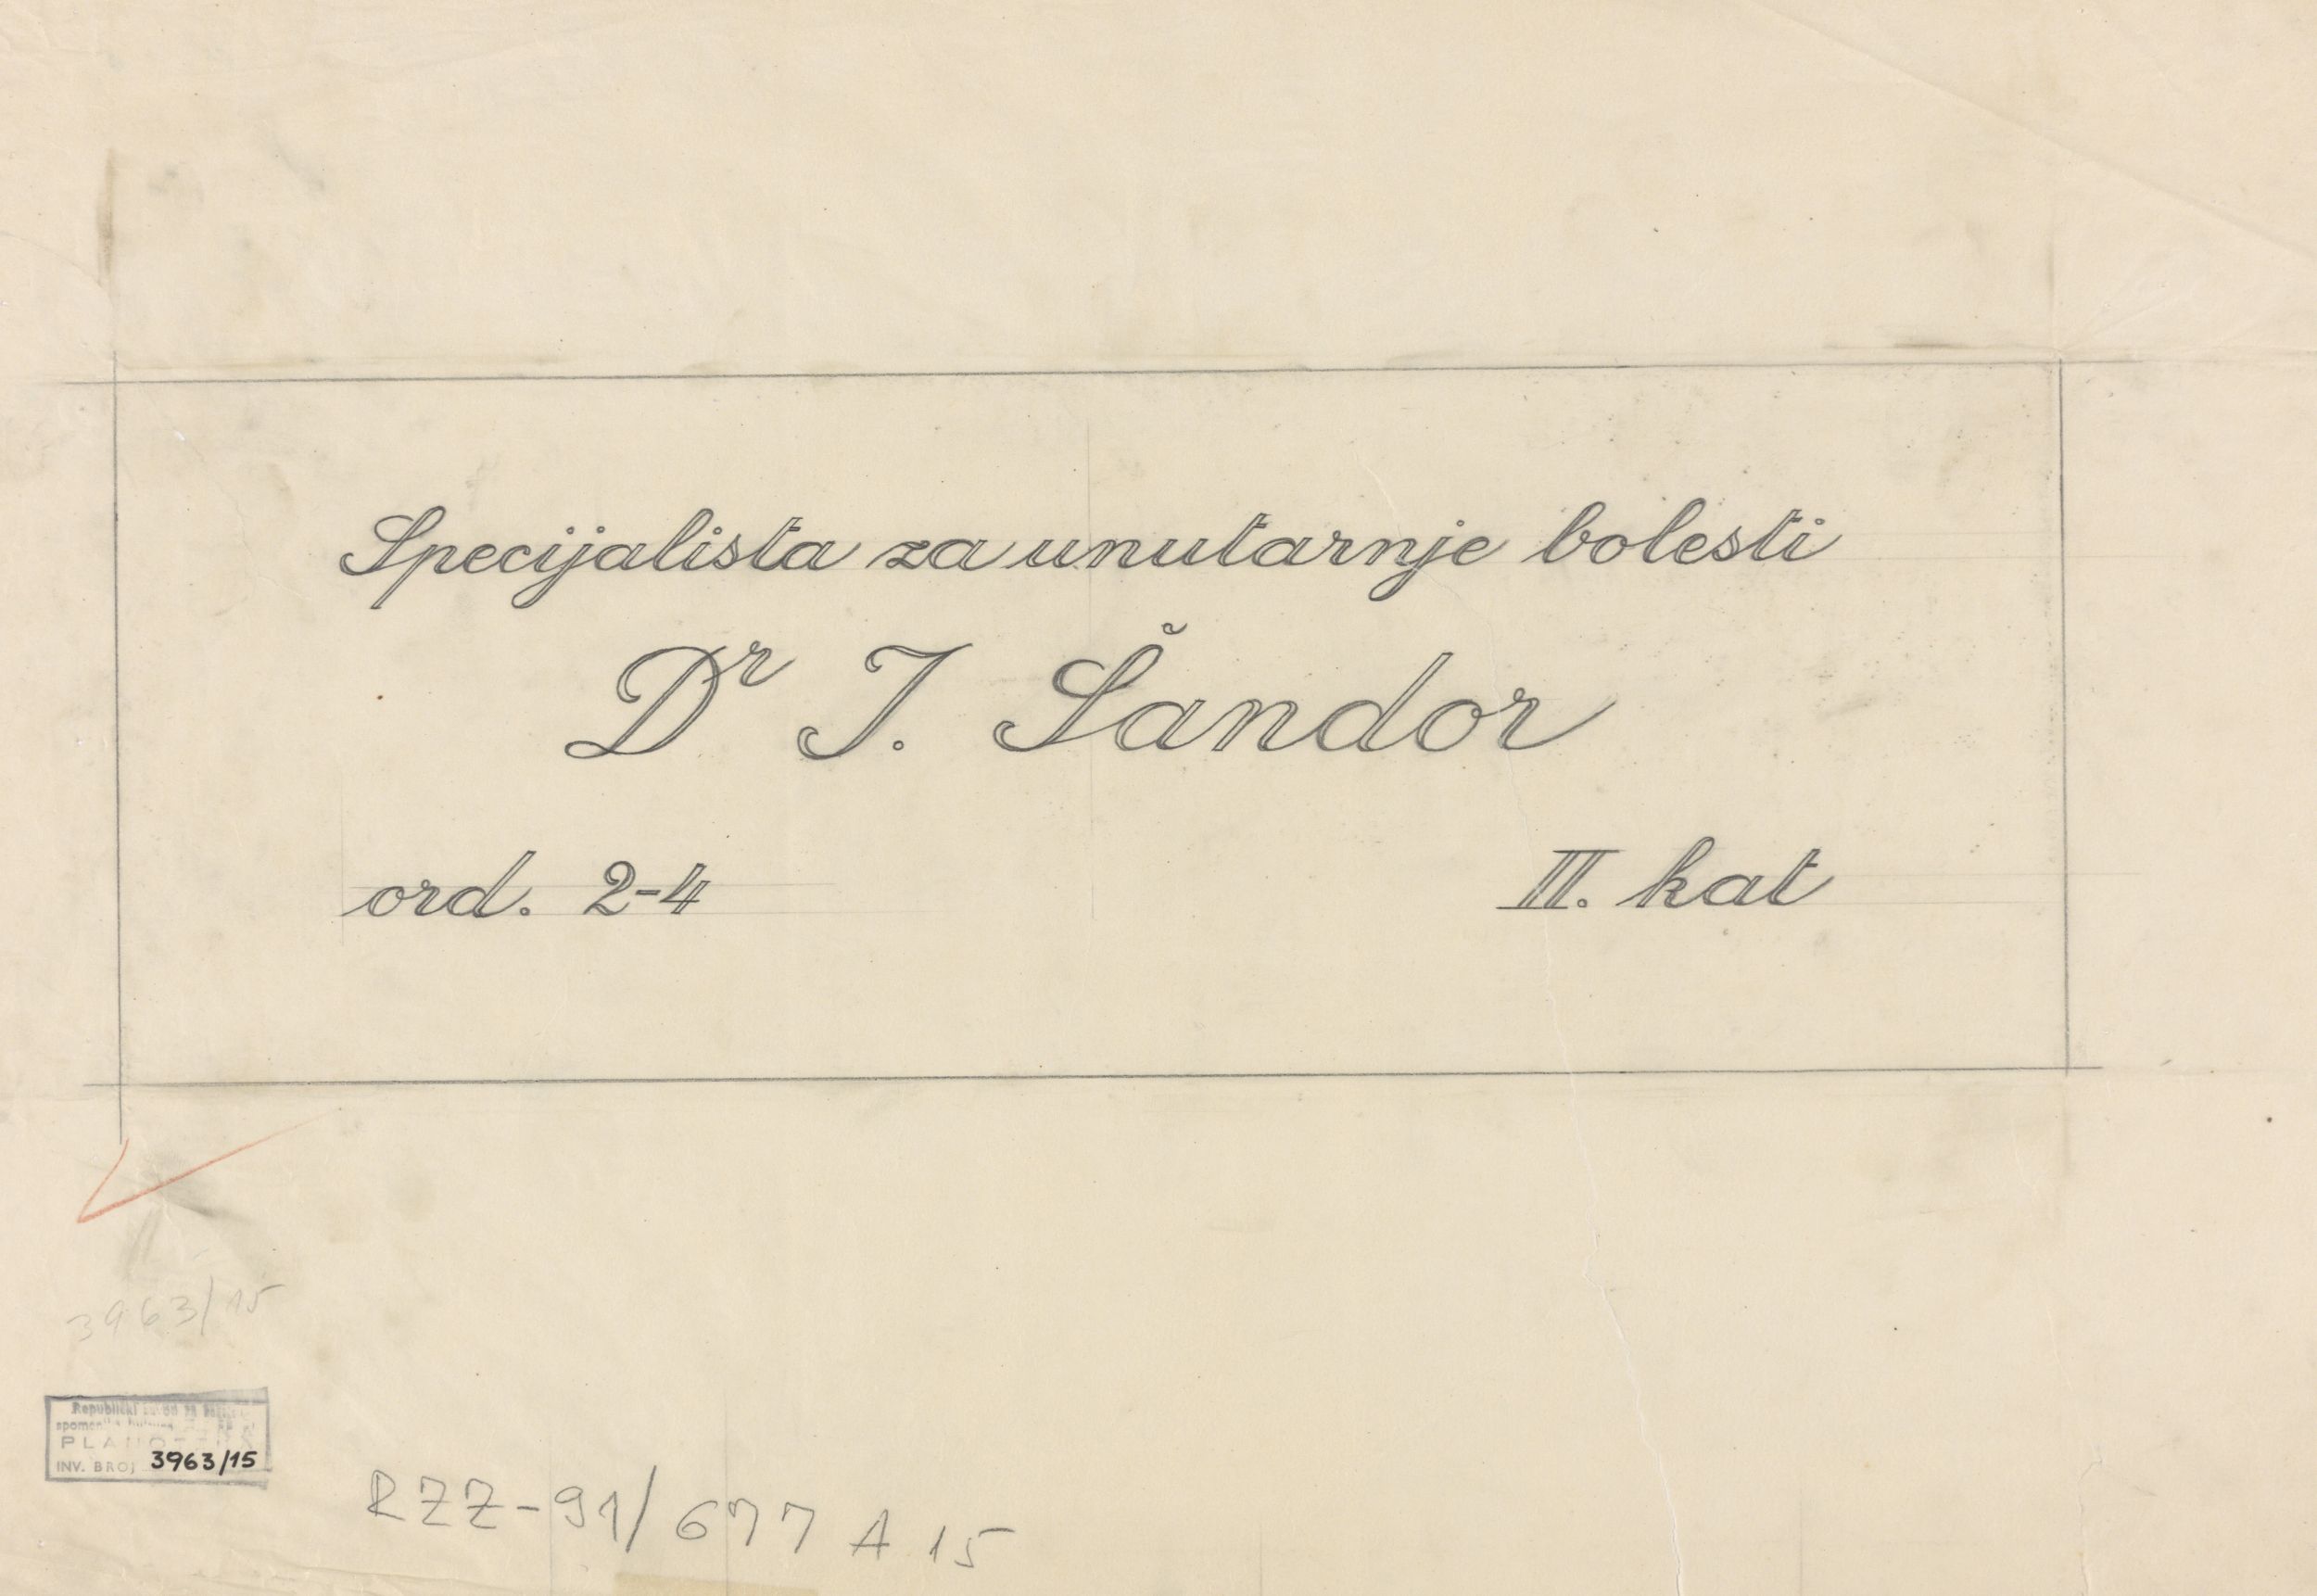 Specijalista za unutarnje bolesti
Dr J. Šandor
ord. 2-4
II. kat
3963/15
Republički zavod za
spomen
PLANOTEKA
INV. BROJ 3963/15
RZZ-91/677 A 15